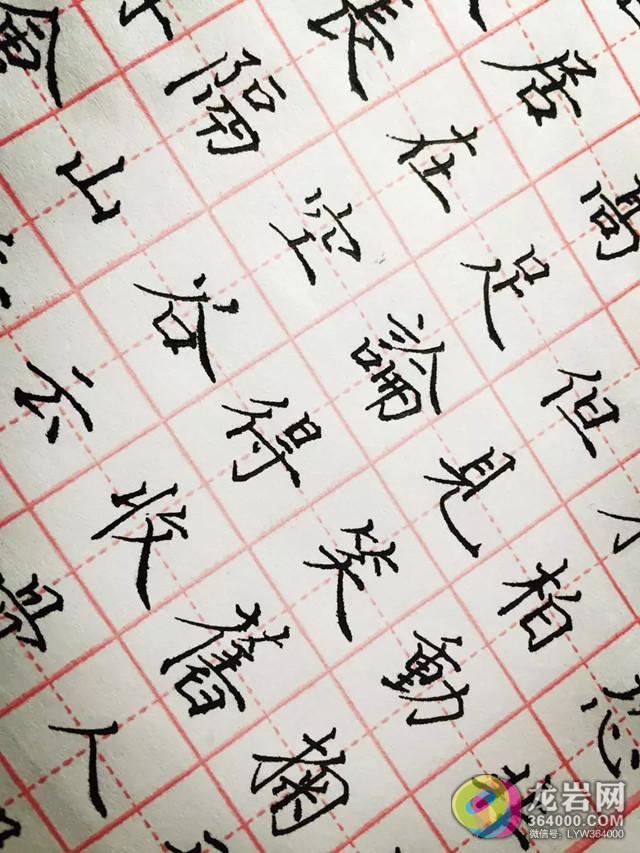 居高
長在足但
隔空論見柏
山谷得笑動
云收舊
人
龙岩网
364000.com
微信号: LYW364000